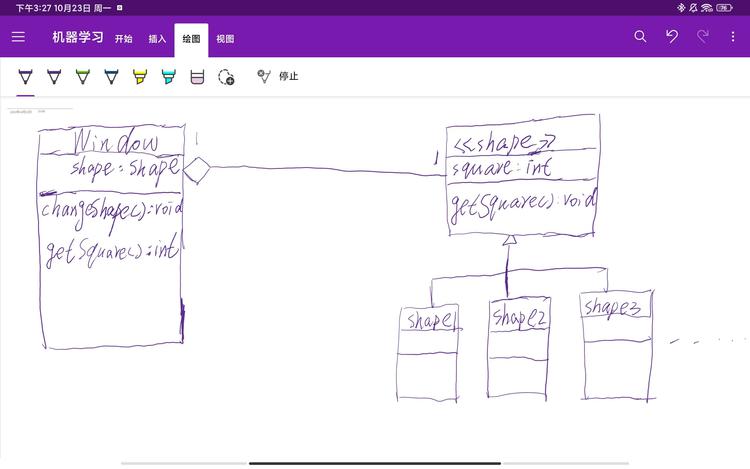 下午3:27 10月23日 周一
76
机器学习 开始 插入 绘图 视图
停止
Window
shape : shape
changeShape() : void
getSquare() : int
1
1
<<shape>>
square : int
getSquare() : void
shape1
shape2
shape3